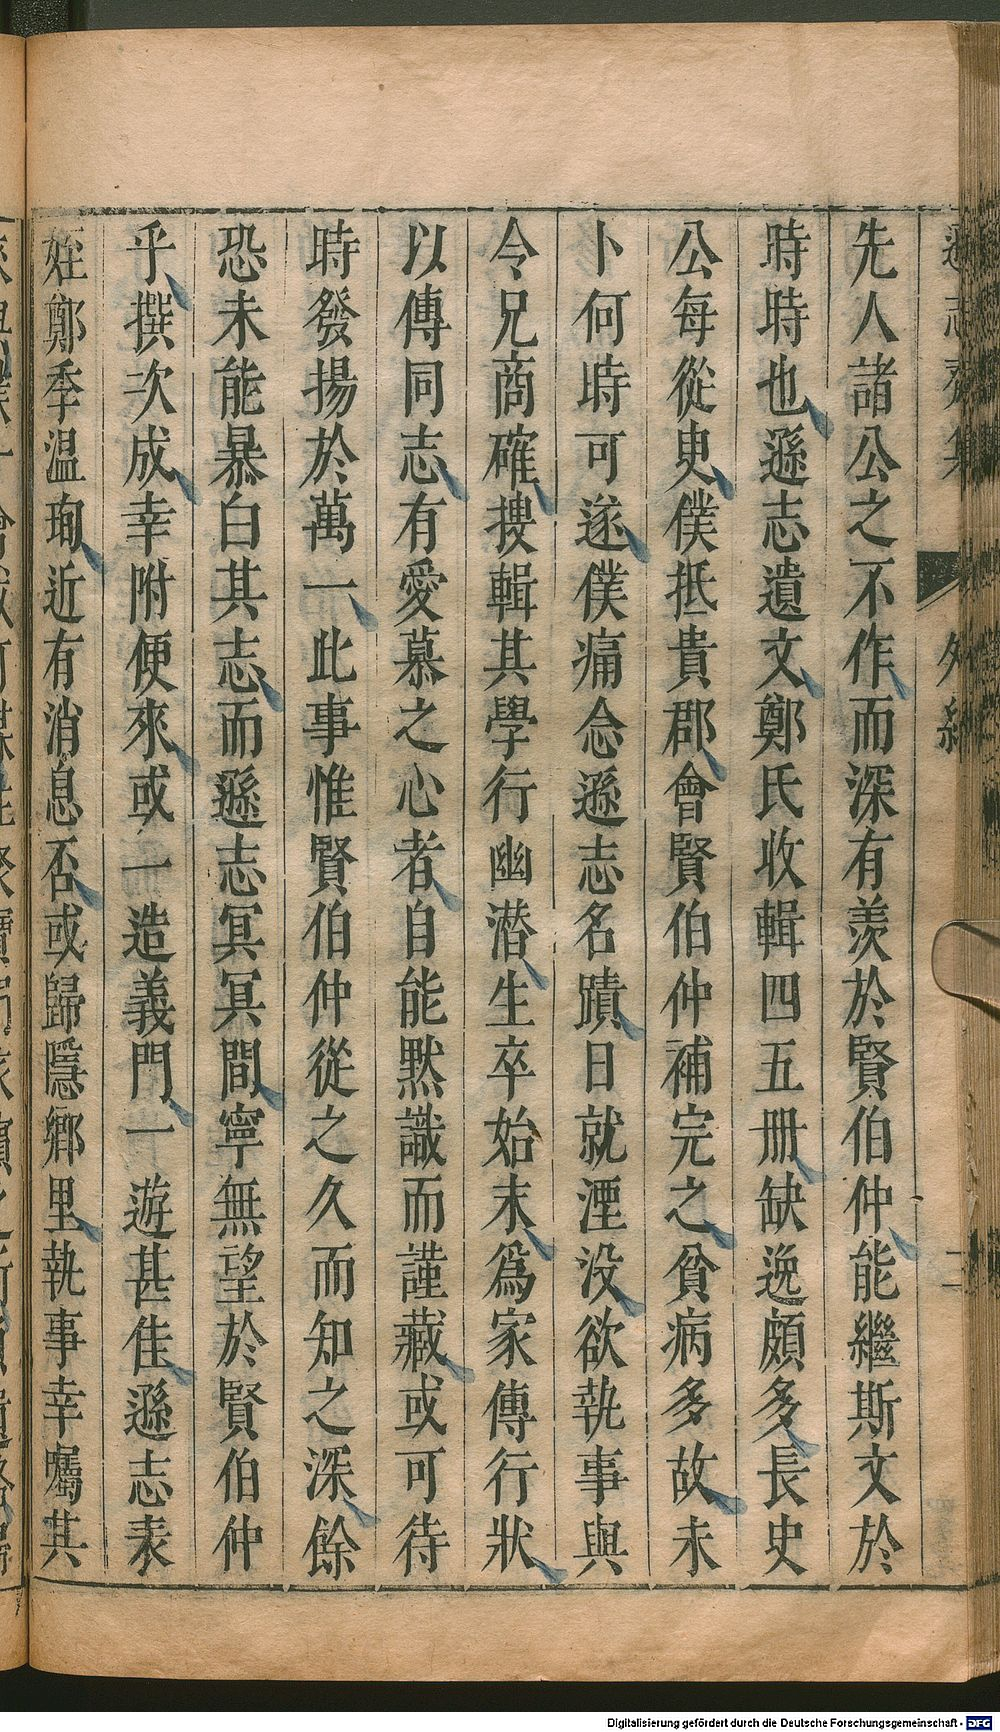 先人諸公之不作而深有羡於賢伯仲能繼斯文於
時時也遜志遺文鄭氏收輯四五冊缺逸頗多長史
公每從臾僕抵貴郡會賢伯仲補完之貧病多故未
卜何時可遂僕痛念遜志名蹟日就湮没欲執事與
令兄商確搜輯其學行幽潜生卒始末爲家傳行狀
以傳同志有愛慕之心者自能默識而謹藏或可待
時發揚於萬一此事惟賢伯仲從之久而知之深餘
恐未能暴白其志而遜志冥冥間寧無望於賢伯仲
乎撰次成幸附便來或一造義門一遊甚佳遜志表
姪鄭季温珣近有消息否或歸隱鄉里執事幸囑其
Digitalisierung gefördert durch die Deutsche Forschungsgemeinschaft - DFG